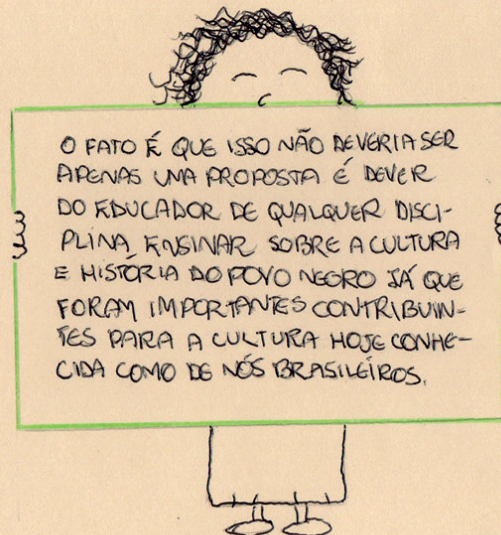 O FATO É QUE ISSO NÃO DEVERIA SER
APENAS UMA PROPOSTA É DEVER
DO EDUCADOR DE QUALQUER DISCI-
PLINA ENSINAR SOBRE A CULTURA
E HISTÓRIA DO POVO NEGRO JÁ QUE
FORAM IMPORTANTES CONTRIBUIN-
TES PARA A CULTURA HOJE CONHE-
CIDA COMO DE NÓS BRASILEIROS.